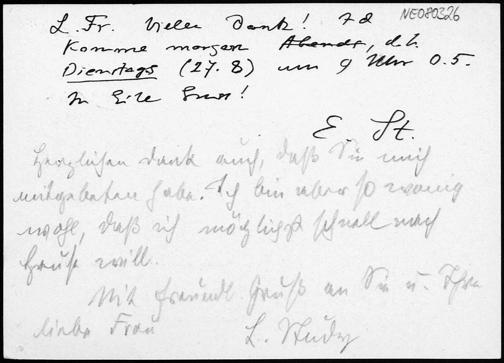 NE080326
L. Fr. Vielen Dank! Ich
komme morgen Abends, d.h.
Dienstags (27.8) um 9 Uhr
In Eile Gruss!
E. St.
Herzlichen Dank auch, daß Sie mich
mitgebeten habe. Ich bin aber so wenig
wohl, daß ich möglichst schnell nach
Hause will.
Mit freundl. Gruß an Sie u. Ihre
liebe Frau
L. Study